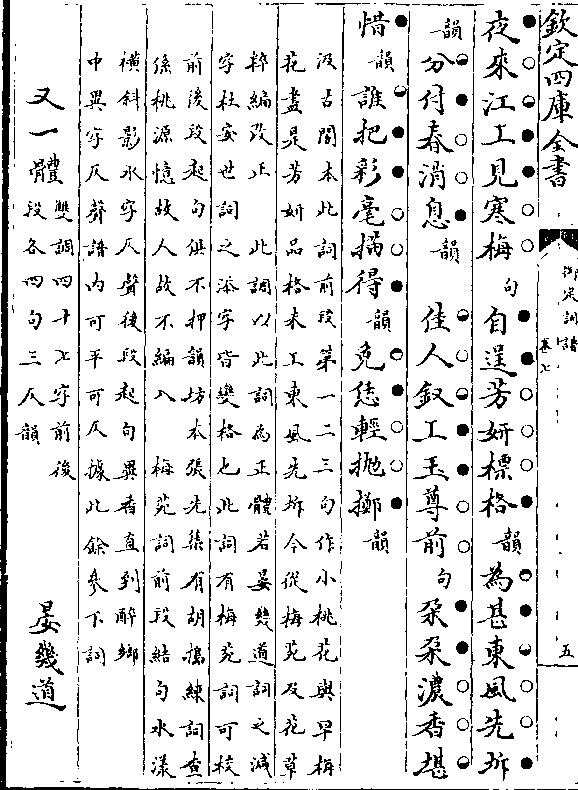 欽定四庫全書
御定詞譜
卷七
五
夜來江上見寒梅句自逞芳妍標格韻為甚東風先坼
韻分付春消息韻 佳人釵上玉尊前句朶朶濃香堪
惜韻誰把彩毫描得韻免恁輕抛擲韻
汲古閣本此詞前段第一二三句作小桃花與早梅
花盡是芳妍品格未上東風先坼今從梅苑及花草
粹編改正 此調以此詞為正體若晏幾道詞之減
字杜安世詞之添字皆變格也此詞有梅苑詞可校
前後段起句俱不押韻坊本張先集有胡搗練詞查
係桃源憶故人故不編入 梅苑詞前段結句水漾
橫斜影水字仄聲後段起句異香直到醉鄉
中異字仄聲譜内可平可仄據此餘參下詞
又一體雙調四十七字前後
段各四句三仄韻
晏幾道